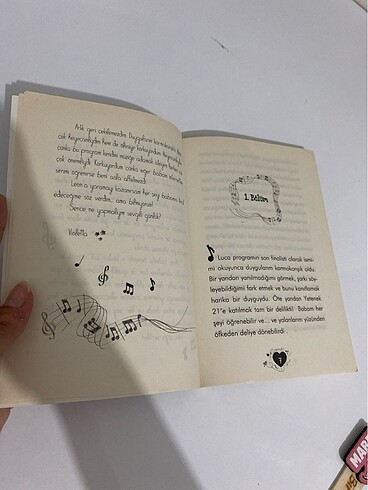 Artık geri çekilemezdim. Duygularım karmakarışıktı,
çok heyecanlıydım hem de
çünkü bu program kendimi müziğe adamak
çok önemliydi. Korkuyordum çünkü eğer babam
sırrımı öğrenirse beni asla affetmezdi.
Leon a yarışmayı kazanırsam her şeyi babama itiraf
edeceğime söz verdim, ama bilmiyorum!
Sence ne yapmalıyım sevgili günlük?
Violetta
1. Bölüm
Luca programın son finalisti olarak ismi-
mi okuyunca duygularım karmakarışık oldu.
Bir yandan yanılmadığımı görmek, şarkı söy-
leyebildiğimi fark etmek ve bunu kanıtlamak
harika bir duyguydu. Öte yandan Yetenek
21'e katılmak tam bir delilikti! Babam her
şeyi öğrenebilir ve... ve yalanlarım yüzünden
öfkeden deliye dönebilirdi.
7
MAR